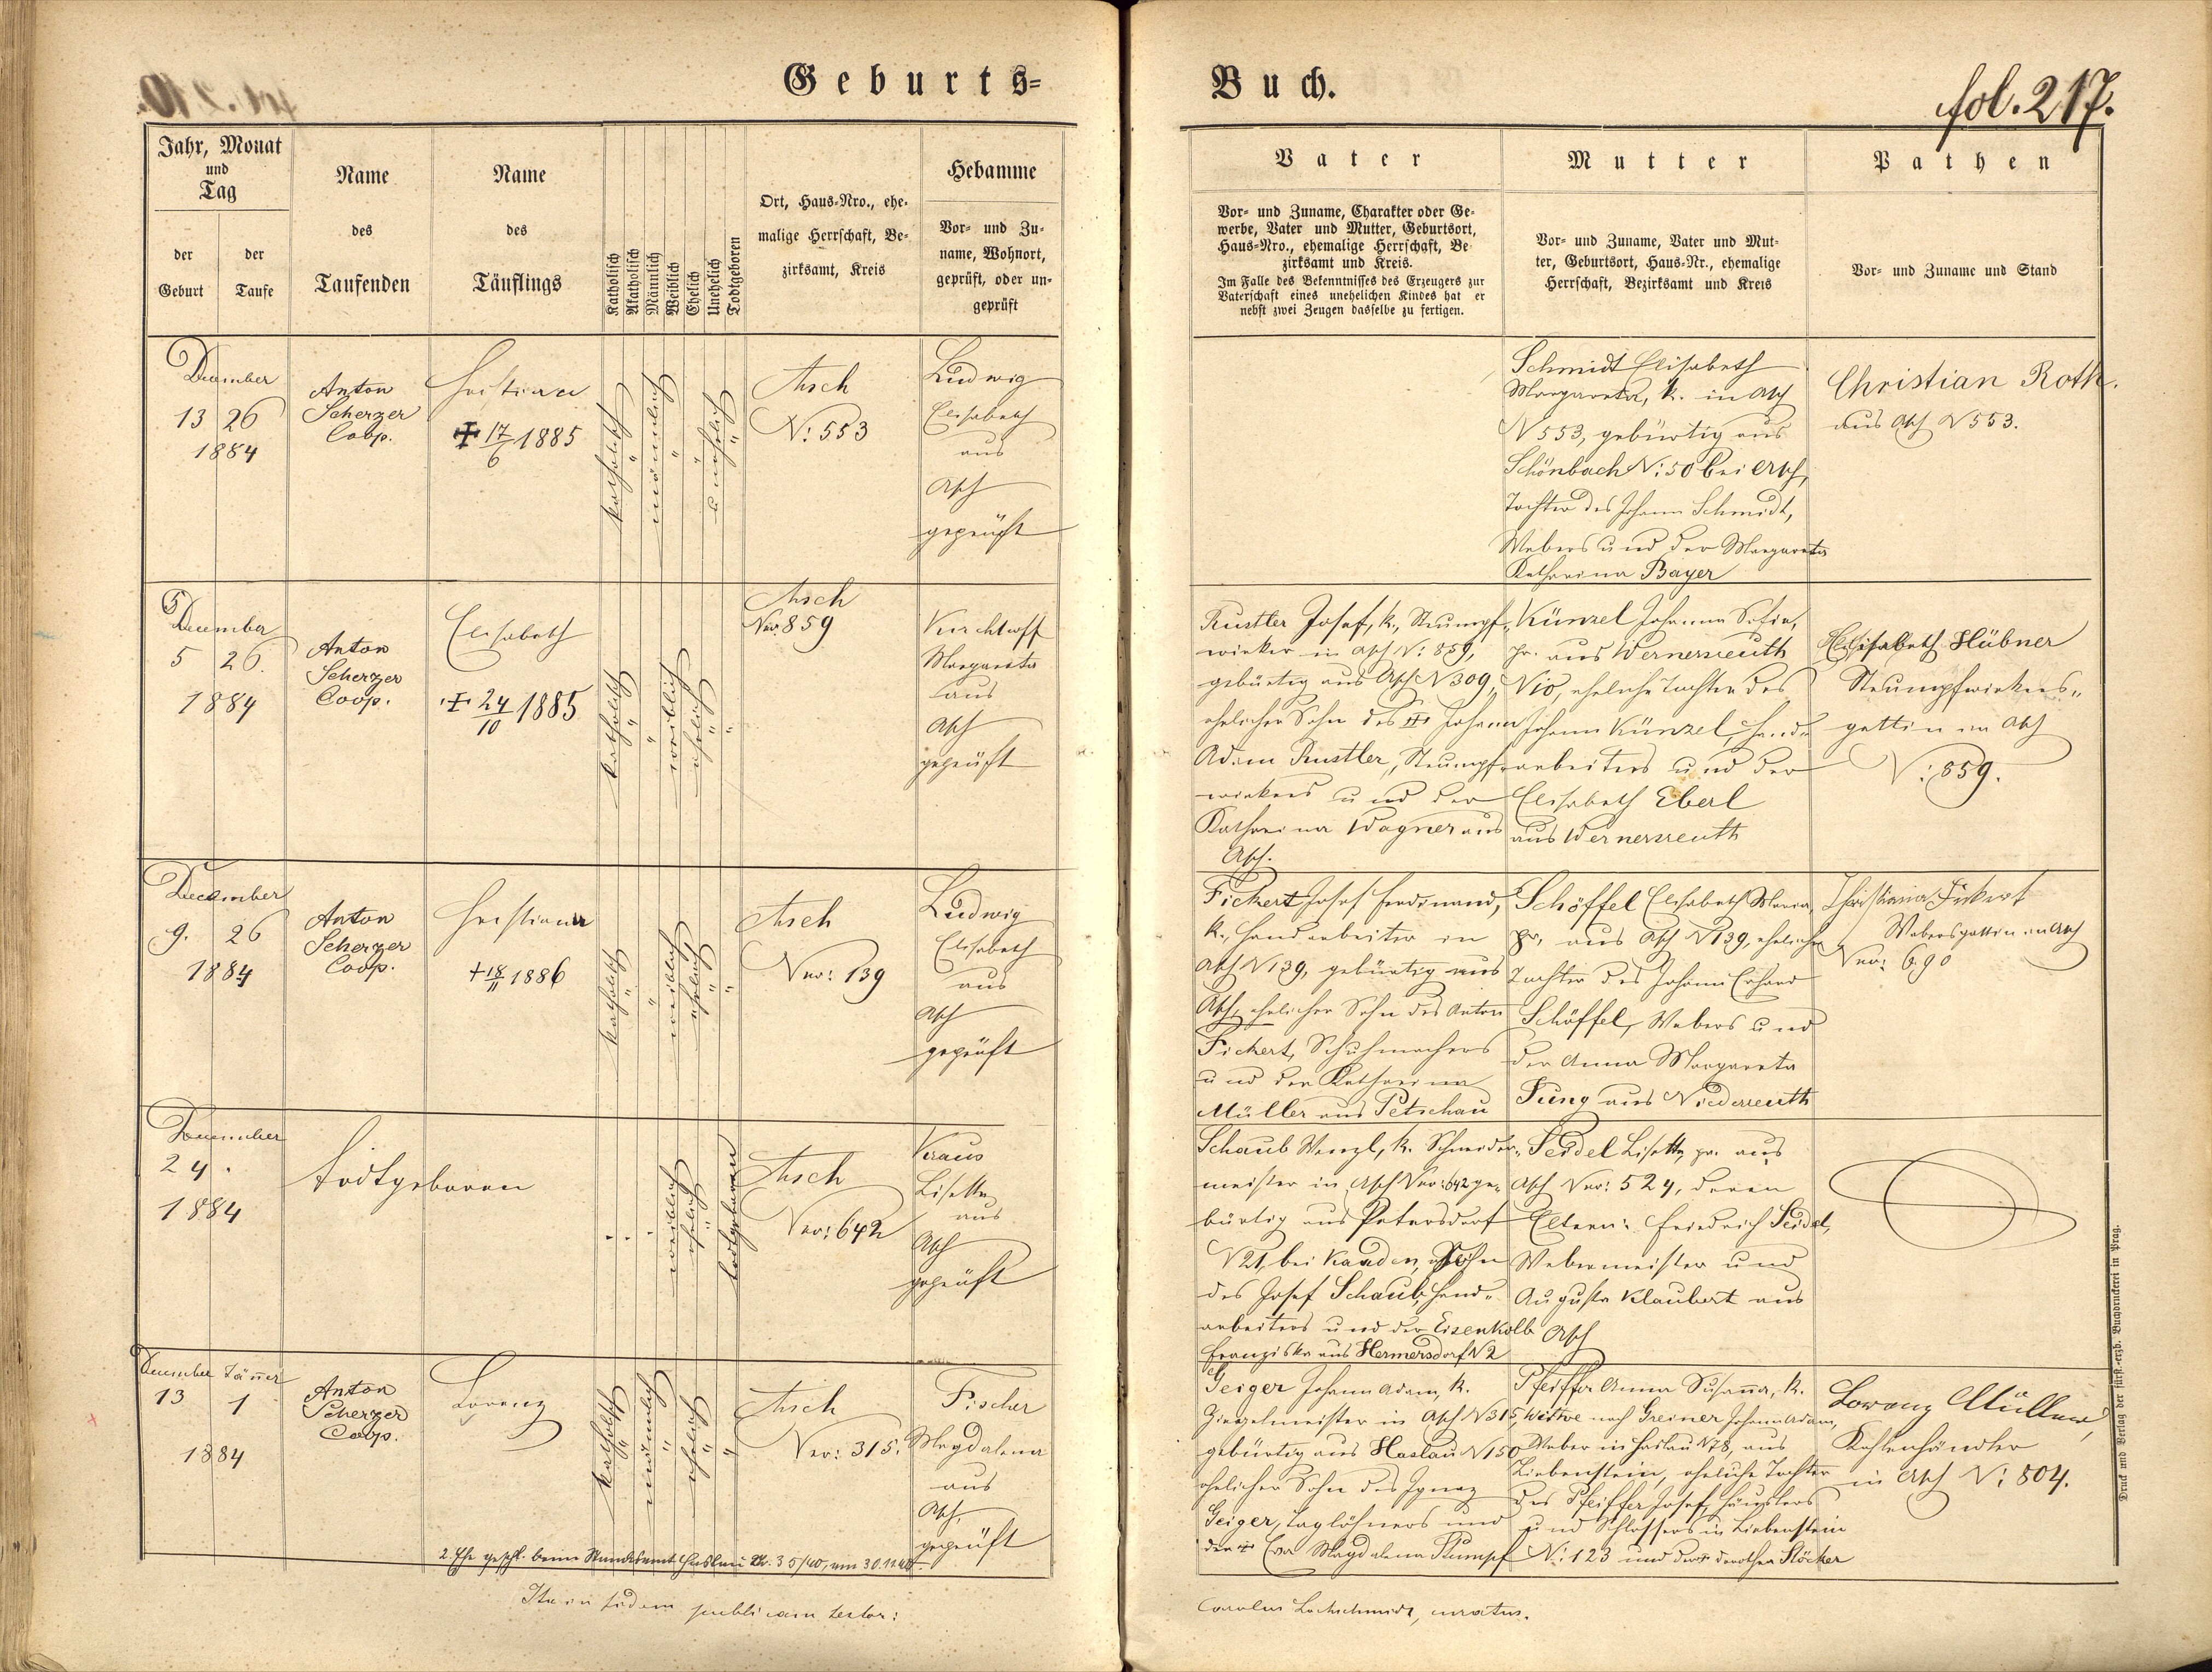 Geburts=
Buch.
fol. 217.
Jahr, Monat
und
Tag
der
Geburt
der
Taufe
Name
des
Taufenden
Name
des
Täuflings
Katholisch
Akatholisch
Männlich
Weiblich
Ehelich
Unehelich
Todtgeboren
Ort, Haus=Nro., ehe-
malige Herrschaft, Be-
zirksamt, Kreis
Hebamme
Vor= und Zu-
name, Wohnort,
geprüft, oder un-
geprüft
Vater
Vor= und Zuname, Charakter oder Ge-
werbe, Vater und Mutter, Geburtsort,
Haus=Nro., ehemalige Herrschaft, Be
zirksamt und Kreis.
Im Falle des Bekenntnisses des Erzeugers zur
Vaterschaft eines unehelichen Kindes hat er
nebst zwei Zeugen dasselbe zu fertigen.
Mutter
Vor= und Zuname, Vater und Mut-
ter, Geburtsort, Haus=Nr., ehemalige
Herrschaft, Bezirksamt und Kreis
Pathen
Vor= und Zuname und Stand
December
13 26
1884
Anton
Scherzer
Coop.
Christian
✠ 17/6 1885
katholisch
"
männlich
"
"
unehelich
"
Asch
N: 553
Ludwig
Elisabeth
aus
Asch
geprüft
Schmidt Elisabeth
Margareta, k. in Asch
N 553, gebürtig aus
Schönbach N: 50 bei Asch,
Tochter des Johann Schmidt,
Webers und der Margareta
Katharina Bayer
Christian Roth.
aus Asch N 553.
5
December
5 26.
1884
Anton
Scherzer
Coop.
Elisabeth
✠ 24/10 1885
katholisch
"
"
weiblich
ehelich
"
"
Asch
Nro: 859
Margareta
aus
Asch
geprüft
Rustler Josef, k., Strumpf-
wirker in Asch N: 859,
gebürtig aus Asch N 309,
ehelicher Sohn des ✠ Johann
Adam Rustler, Strumpf-
wirkers und der
Katharina Wagner aus
Asch.
Künzel Johanna Sofia,
pr. aus Wernersreuth
N 10, eheliche Tochter des
Johann Künzel, Hand-
arbeiters und der
Elisabeth Eberl
aus Wernersreuth
Elisabeth Hübner
Strumpfwirkers-
gattin in Asch
N: 859.
December
9. 26
1884
Anton
Scherzer
Coop.
Christiana
+ 18/11 1886
katholisch
"
"
weiblich
ehelich
"
"
Asch
Nro: 139
Ludwig
Elisabeth
aus
Asch
geprüft
Fickert Josef Ferdinand,
k., Handarbeiter in
Asch N 139, gebürtig aus
Asch, ehelicher Sohn des Anton
Fickert, Schuhmachers
und der Katharina
Müller aus Petschau
Schöffel Elisabeth Maria,
pr. aus Asch N 139, eheliche
Tochter des Johann Erhard
Schöffel, Webers und
der Anna Margareta
Jung aus Niederreuth
Christiana Fickert
Webersgattin in Asch
Nro: 690
December
24.
1884
todtgeboren
weiblich
ehelich
"
todtgeboren
Asch
Nro: 642
Kraus
Lisette
aus
Asch
geprüft
Schaub Wenzl, k. Schneider-
meister in Asch Nro: 642 ge-
bürtig aus Petersdorf
N 21, bei Kaaden, Sohn
des Josef Schaub, Hand-
arbeiters und der Eisenkolb
Franziska aus Hermersdorf N 2
Seidel Lisette, pr. aus
Asch Nro: 524, deren
Eltern: Friedrich Seidel,
Webermeister und
Augusta Klaubert aus
Asch
December Jänner
13 1
1884
Anton
Scherzer
Coop.
Lorenz
katholisch
"
männlich
"
ehelich
"
"
Asch
Nro: 315.
Fischer
Magdalena
aus
Asch,
geprüft
Geiger Johann Adam, k.
Ziegelmeister in Asch N 315,
gebürtig aus Haslau N 150
ehelicher Sohn des Ignaz
Geiger, Taglöhners und
der ✠ Eva Magdalena Stumpf
Pfeiffer Anna Susanna, k.
Wittwe nach Greiner Johann Adam,
Weber in Haslau N 78, aus
Liebenstein, eheliche Tochter
des Pfeiffer Josef, Häuslers
und Schlossers in Liebenstein
N: 123 und der Dorothea Stöcker
Lorenz Müller,
Kohlenhändler
in Asch N: 804.
2. Ehe geschl. beim Standesamt Haslau Nr. 35/40, am 30.11.40
Ita in fidem publicam testor:
Carolus Lochschmidt, curatus.
Druck und Verlag der fürst.-erzb. Buchdruckerei in Prag.